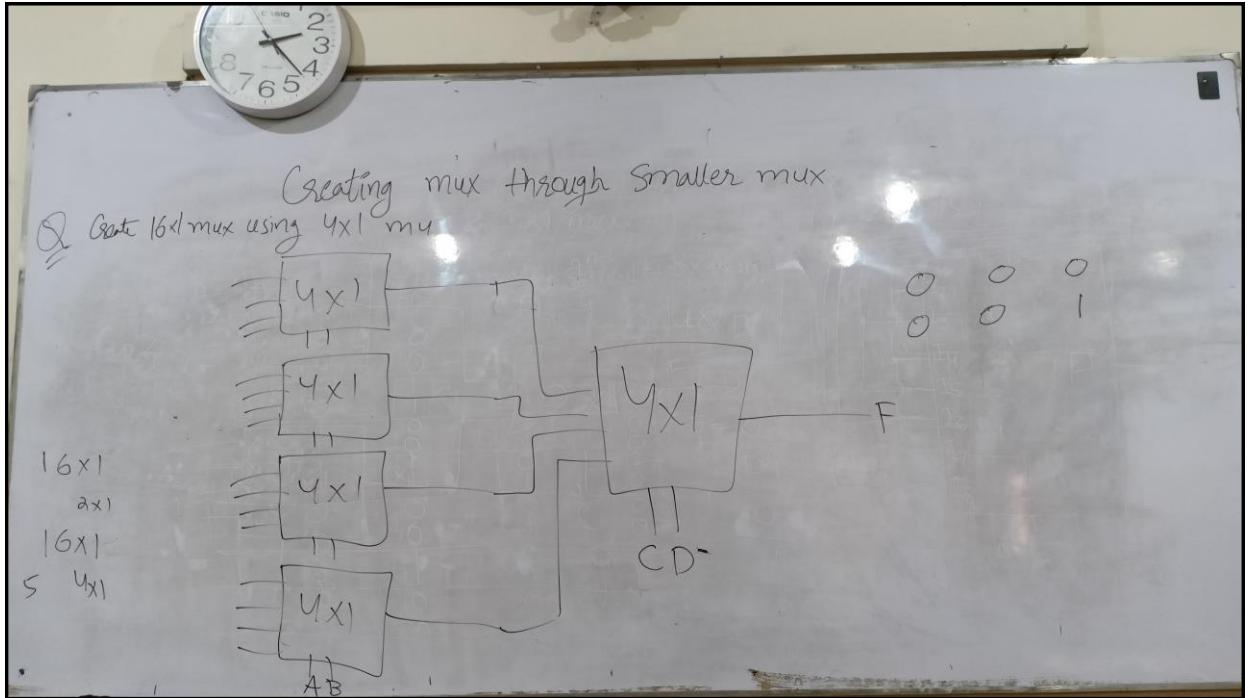 CASIO
2
3
4
5
6
7
8
Creating mux through smaller mux
Q Create 16x1 mux using 4x1 mu
4x1
4x1
4x1
4x1
4x1
F
CD
AB
0 0 0
0 0 1
16x1
2x1
16x1
5 4x1